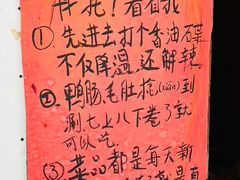 拜托！看看我
① 先进去打个香油碟
不仅降温，还解辣
② 鸭肠毛肚捻(niǎn)到
涮七上八下卷了就
可以吃
③ 菜品都是每天新